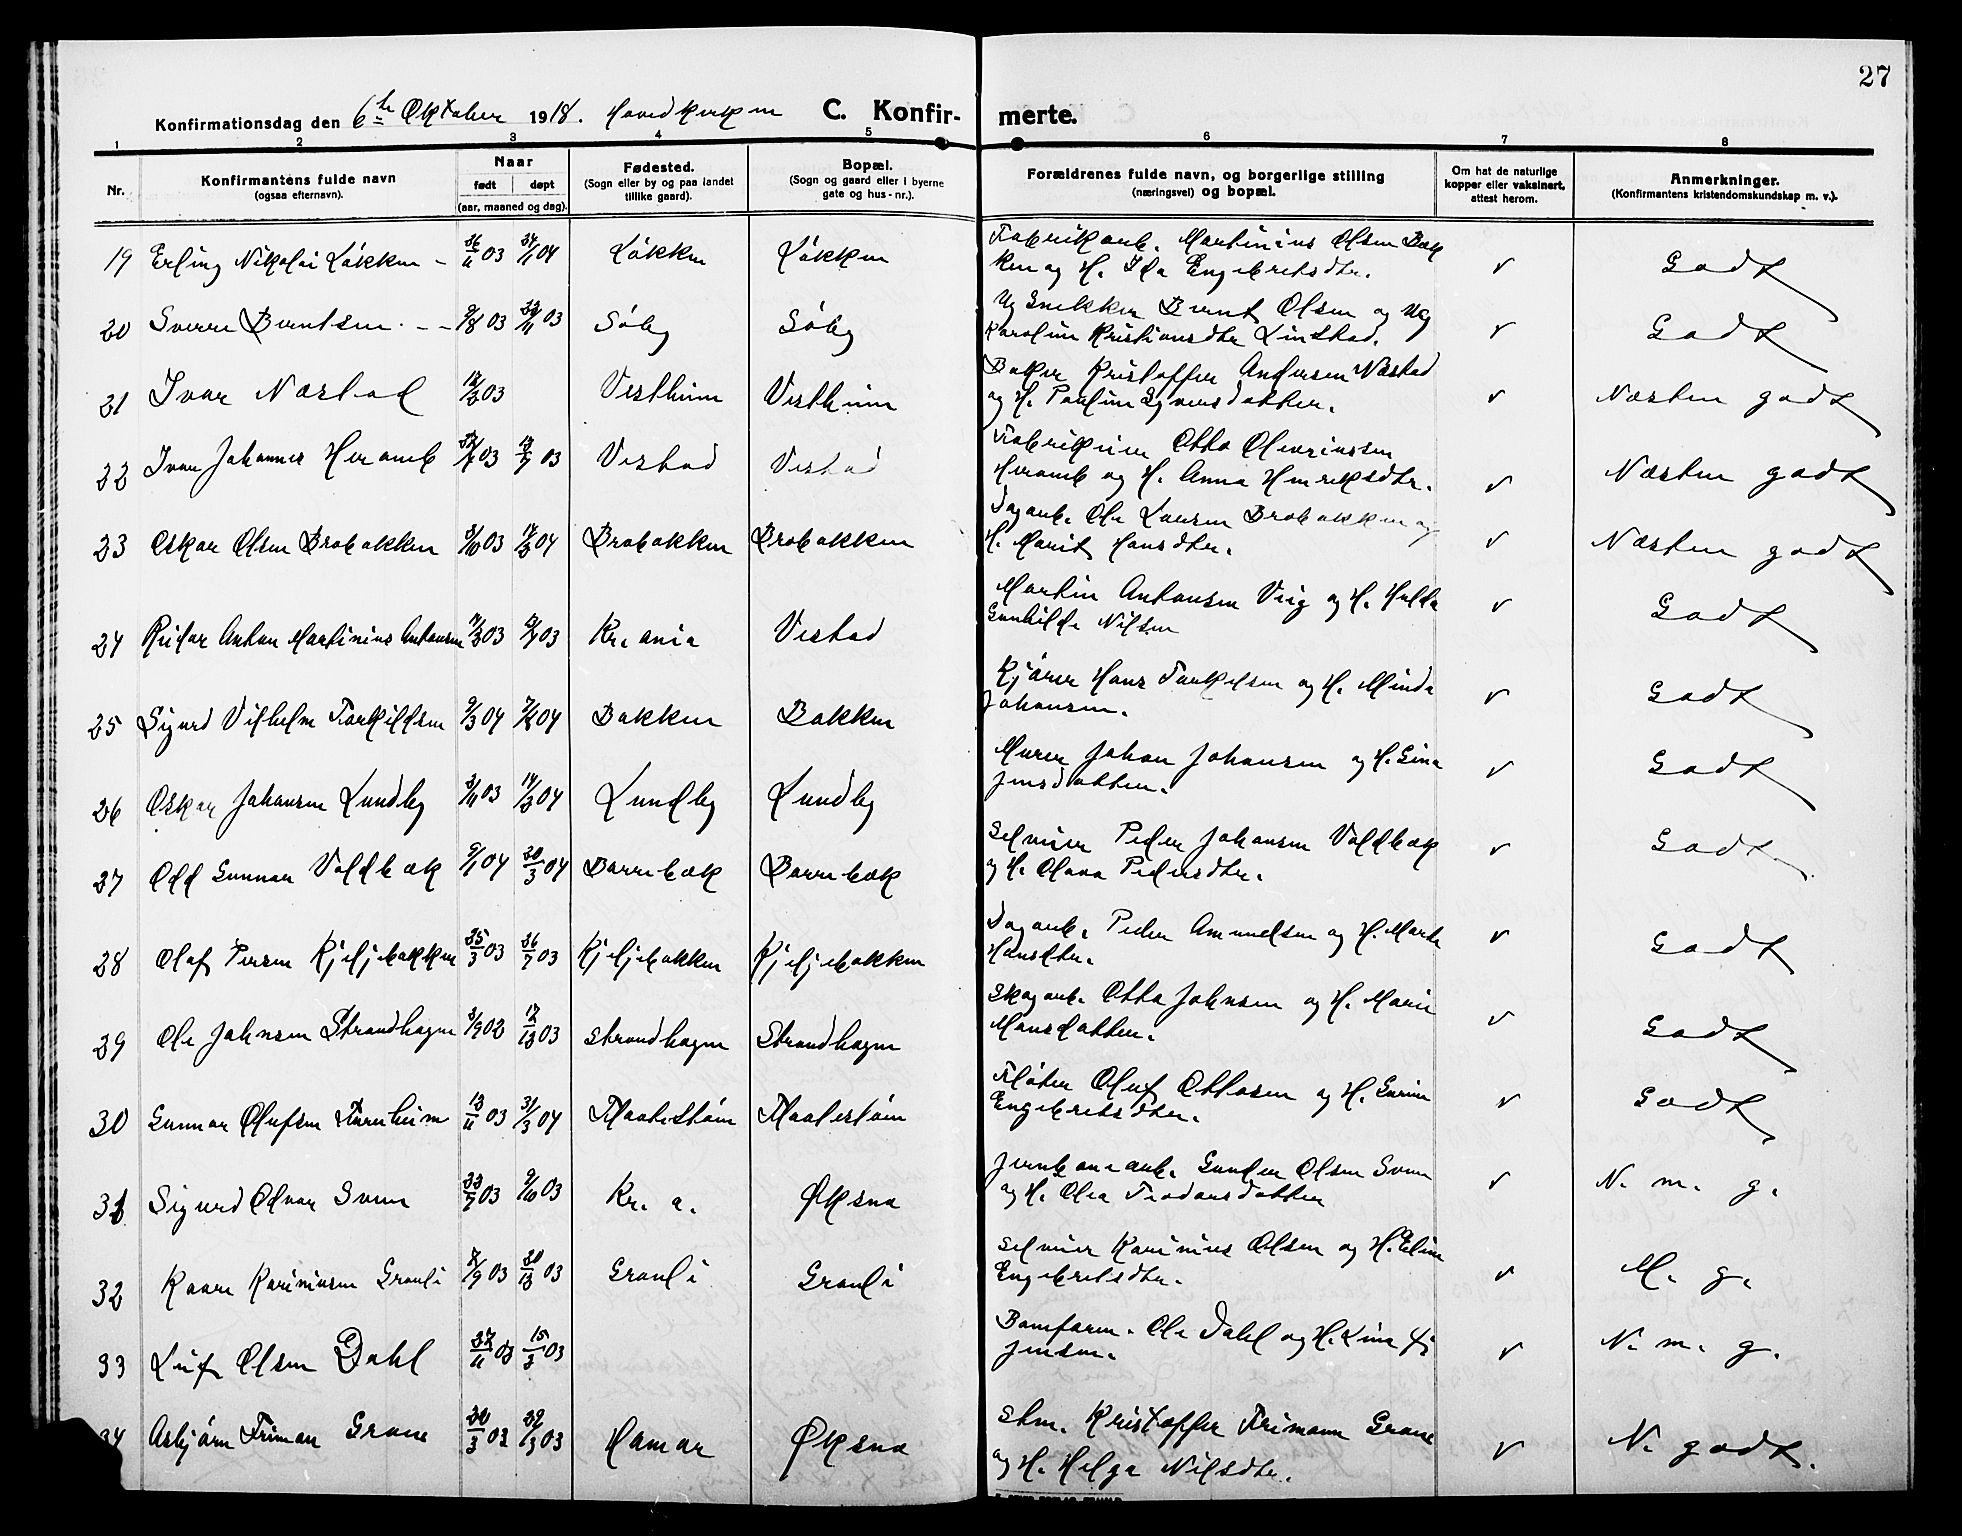 27
Konfirmationsdag den 6te Oktober 1918. Hovedkirken C. Konfirmerte.
1 2 3 4 5 6 7 8
Nr. Konfirmantens fulde navn (ogsaa efternavn). Naar født døpt (aar, maaned og dag). Fødested. (Sogn eller by og paa landet tillike gaard). Bopæl. (Sogn og gaard eller i byerne gate og hus-nr.). Forældrenes fulde navn, og borgerlige stilling (næringsvei) og bopæl. Om hat de naturlige kopper eller vaksinert, attest herom. Anmerkninger. (Konfirmantens kristendomskundskap m. v.).
19 Erling Nikolai Løkken 26/11 03 24/1 04 Løkken Løkken Fabrikarb. Martinius Olsen Bak
ken og H. Ida Engebretsdtr. v Godt
20 Sverre Berntsen 9/8 03 22/11 03 Søby Søby Ug Snekker Bernt Olsen og Ug
Karoline Kristiansdtr Linstad. v Godt
21 Ivar Næstad 12/2 03 Vestheim Vestheim Baker Kristoffer Andersen Næstad
og H. Pauline Syversdatter. v Næsten godt
22 Ivar Johannes Heramb 03 03 Vestad Vestad Fabrikeier Otto Olavriussen
Heramb og H. Anna Henriksdtr. v Næsten godt
23 Oskar Olsen Brobakken 8/10 03 14/2 04 Brobakken Brobakken Dagarb. Ole Larsen Brobakken og
H. Marit Hansdtr. v Næsten godt
24 Reidar Anton Martinius Antonsen 03 03 Kr.ania Vestad Martin Antonsen Vig og H. Hulda
Gunhilde Nilsen v Godt
25 Sigurd Vilhelm Torkildsen 9/3 04 04 Bakken Bakken Kjører Hans Torkelsen og H. Minda
Johansen. v Godt
26 Oskar Johansen Lundby 3/11 03 14/2 04 Lundby Lundby Murer Johan Johansen og H. Gina
Jensdatter. v Godt
27 Odd Gunnar Voldbæk 9/1 04 20/3 04 Borrebæk Borrebæk Selveier Peder Johansen Voldbæk
og H. Olava Pedersdtr. v Godt
28 Olaf Persen Kjeljebakken 25/3 03 26/7 03 Kjeljebakken Kjeljebakken Dagarb. Peder Amundsen og H. Marte
Hansdtr. v Godt
29 Ole Johnsen Strandhagen 3/9 02 12/12 03 Strandhagen Strandhagen Skogarb. Otto Johnsen og H. Marie
Hansdatter. v Godt
30 Gunnar Olufsen Furuheim 13/11 03 31/3 04 Flaatestøin Flaatestøin Fløter Oluf Ottosen og H. Gurine
Engebretsdtr. v Godt
31 Sigurd Odvar Sveen 23/7 03 9/10 03 Kr. a. Øksna Jernbanearb. Gunder Olsen Sveen
og H. Olea Teodorsdatter v N. m. g.
32 Kaare Karinusen Granli 9 03 20/12 03 Granli Granli Selveier Karinius Olsen og H. Eline
Engebretsdtr. v M. g.
33 Leif Olsen Dahl 27/11 02 15/2 03 Banform. Ole Dahl og H. Lina
Jensen. v N. m. g.
34 Asbjørn Friman Grane 20/3 03 29/12 03 Hamar Øksna Stm. Kristoffer Frimann Grane
og H. Helga Nilsdtr. v N. godt.